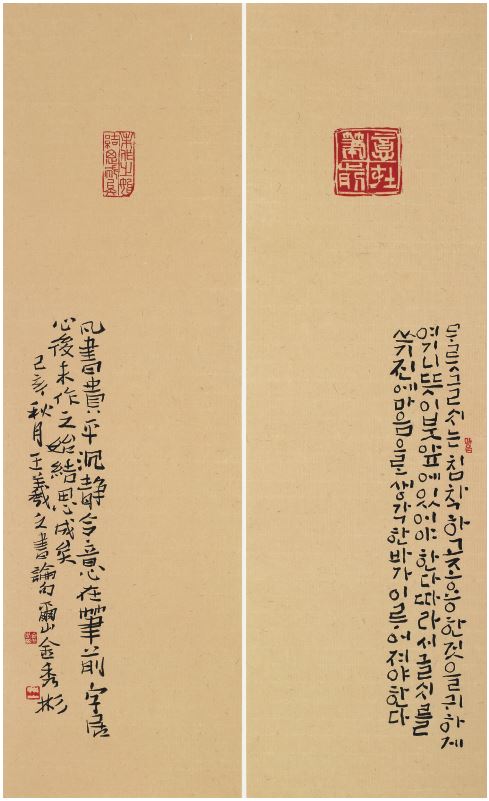 意在筆前
무릇글씨는침착하고조용한것을귀하게
여기니뜻이붓앞에있어야한다따라서글씨를
쓰기전에마음을생각한바가이루어져야한다
未作之始
結思成矣
凡書貴乎沉静令意在筆前字居
心後未作之始結思成矣
己亥秋月王羲之書論句爾山金秀彬